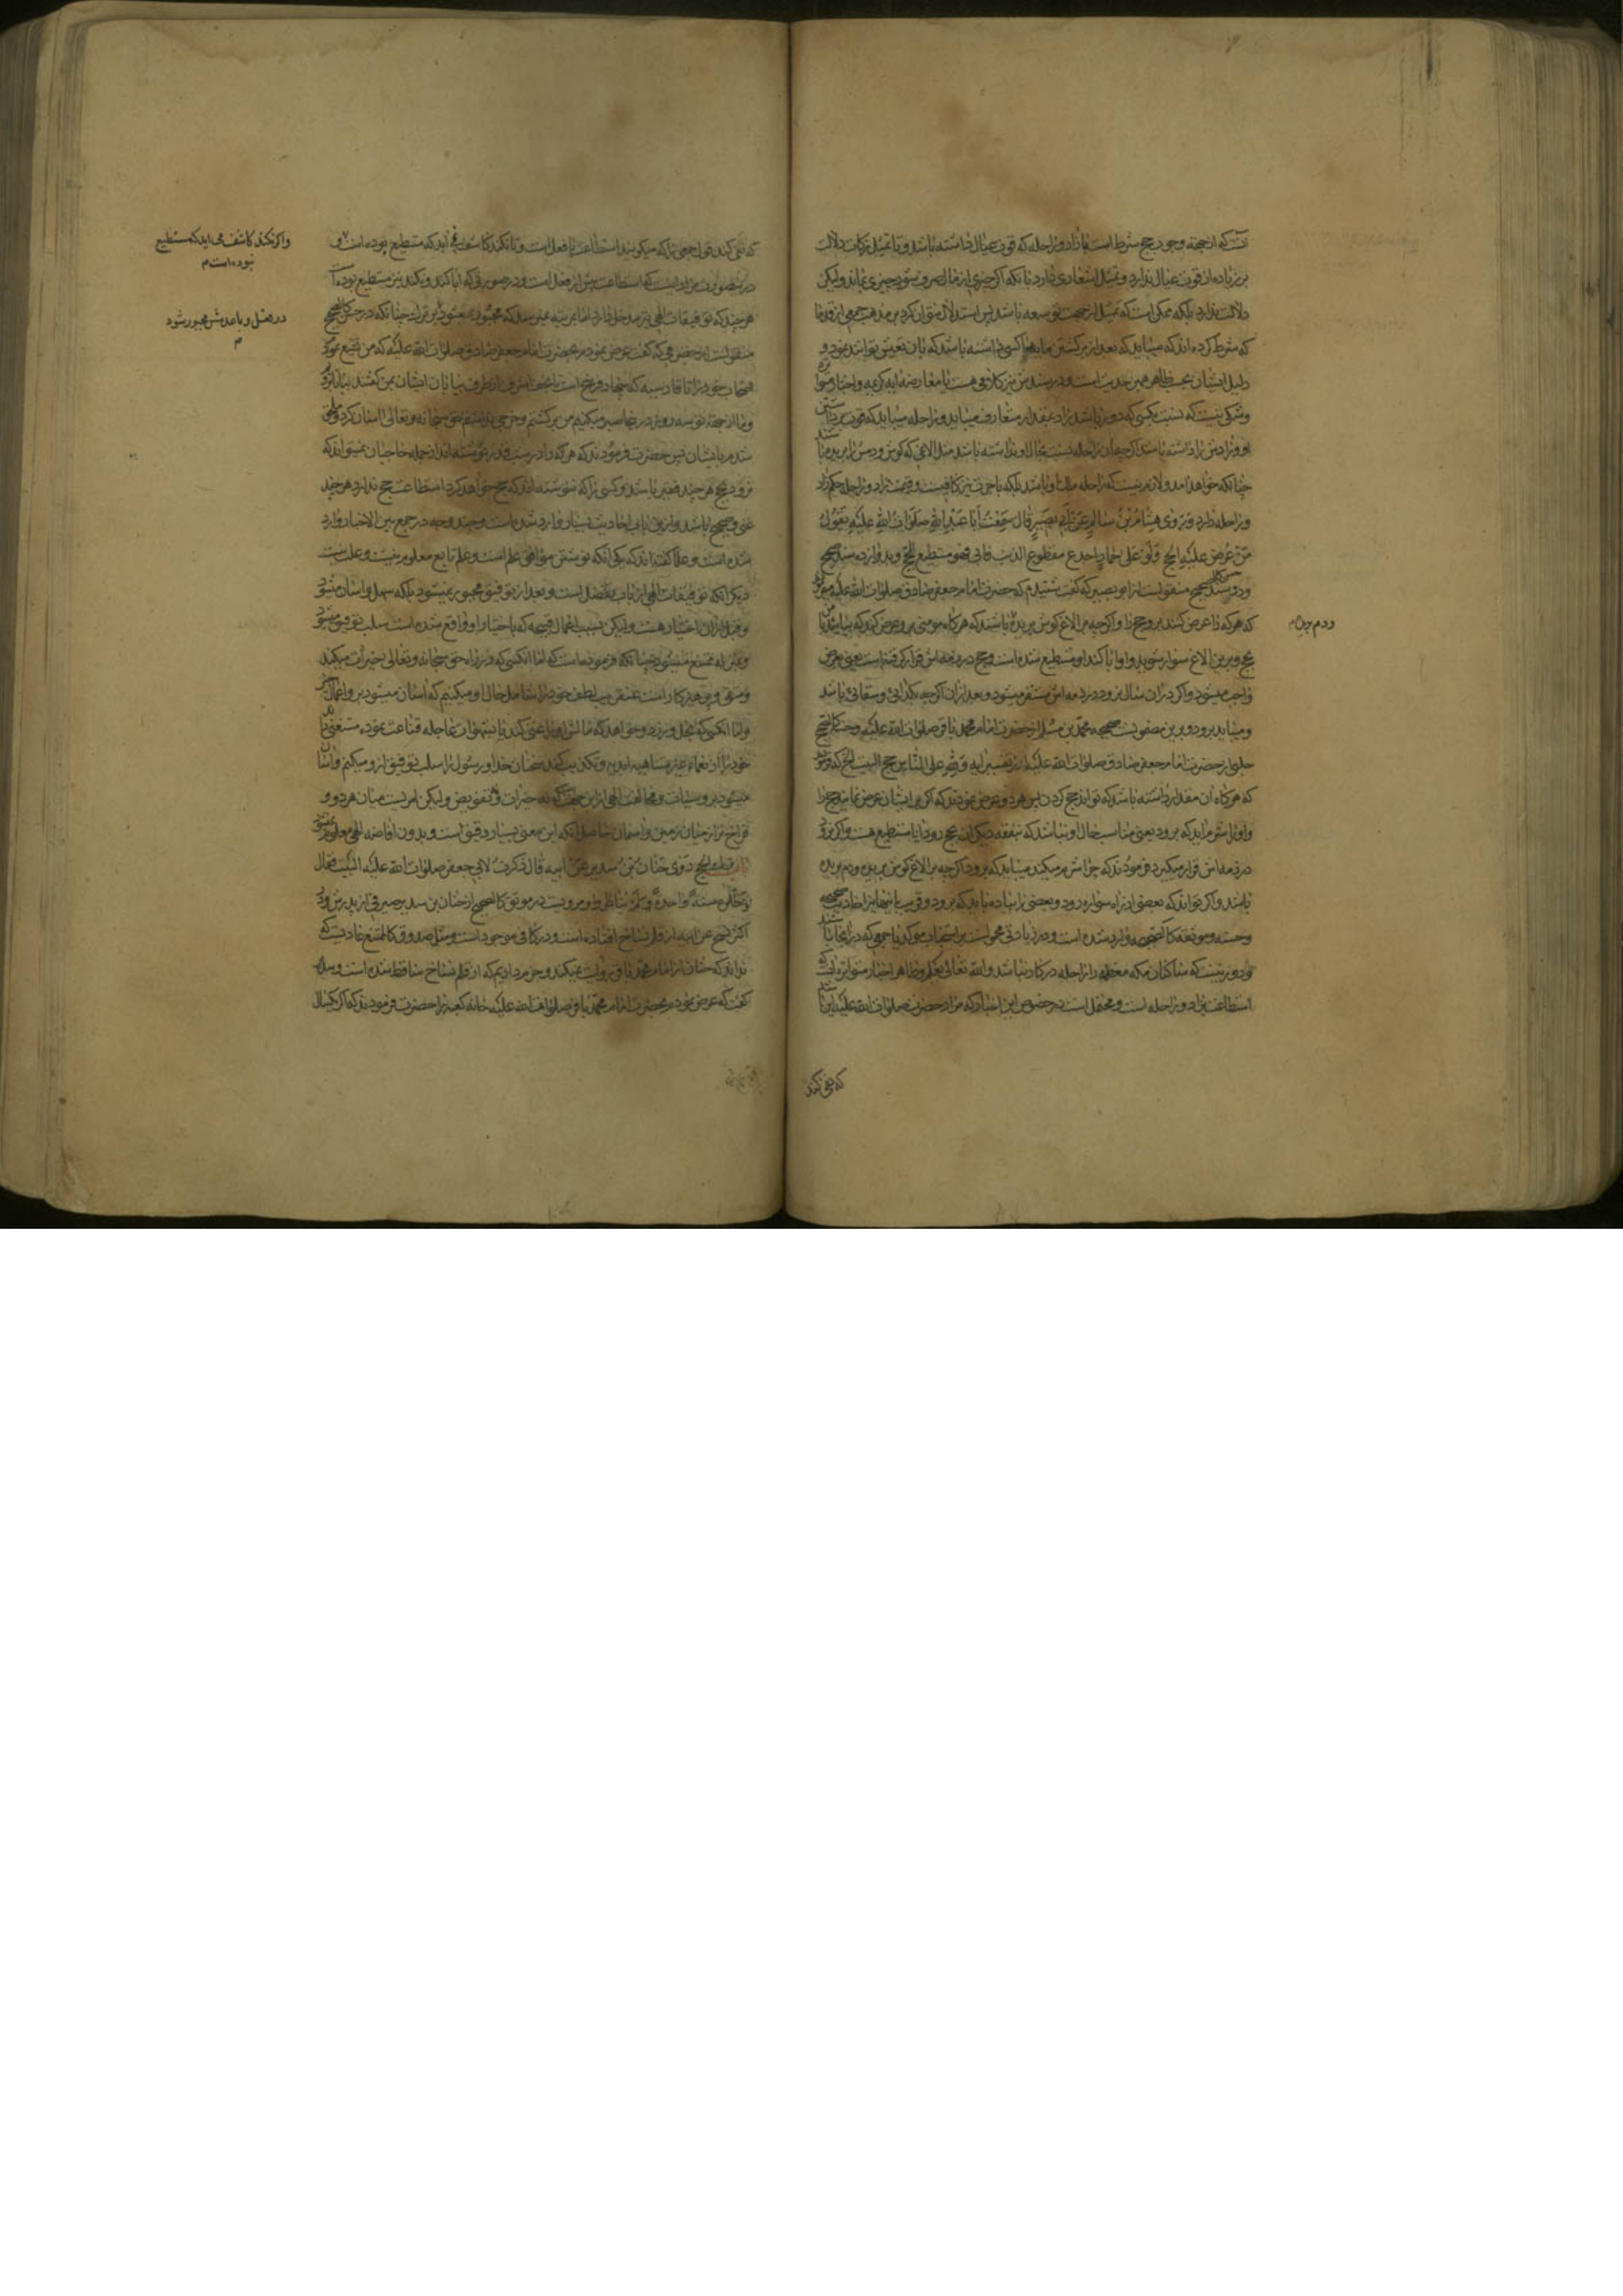 آنست که از جهة وجوب حج شرط است که زاد و راحله که قوت عیال داشته باشد و یا تمثیل بزکات دلالت
بر زیاده از قوت عیال ندارد و تمثیل اشعاری دارد بانکه اگر چیزی از مال صرف شود چیزی بماند و لیکن
دلالت ندارد بلکه ممکن است که تمثیل از جهت توسعه باشد پس استدلال نتوان کرد بر مذهب جمعی از قدما
که شرط کرده‌اند که میباید که بعد از برگشتن مایه یا کسی داشته باشد که بان تعیش تواند نمود و
دلیل ایشان بحسب ظاهر همین حدیث است و در سندش نیز کلامی هست با معارضه ایه کریمه و اخبار متواتره
و شکی نیست که نسبت بکسی که دور باشد زاد بقدر متعارف میباید و راحله میباید که قوت برداشتن
او و زادش را داشته باشد اگر چه ان راحله نسبت بحال او نداشته باشد مثل الاغی که گوش و دمش را بریده باشند
چنانکه خواهد آمد و لازم نیست که راحله ملک او باشد بلکه باجرت نیز کافیست و قیمت زاد و راحله حکم زاد
و راحله دارد وَرَوٰی هِشَامُ بْنُ سَالِمٍ عَنْ أَبِي بَصِيرٍ قَالَ سَمِعْتُ أَبَا عَبْدِ اللهِ صَلَوَاتُ اللهِ عَلَيْهِ يَقُولُ
مَنْ عُرِضَ عَلَيْهِ الحَجُّ وَلَوْ عَلَى حِمَارٍ اجدع مقطوع الذنب فابى فهو مستطيع للحج و بدوازده سند صحیح
و دو سند حسن کالصحیح منقولست از ابو بصیر که گفت شنیدم که حضرت امام جعفر صادق صلوات الله علیه میفرمودند
که هر که را عرض کنند برو حج را و اگر چه بر الاغ گوش بریده باشد که هرگاه مومنی برو عرض کند که بیا با من
بحج و برین الاغ سوار شو و او ابا کند او مستطیع شده است و حج در ذمه اش قرار گرفته است یعنی بعرض
واجب میشود و اگر در ان سال نرود در ذمه اش مستقر میشود و بعد از ان اگر چه بگدائی و سقائی باشد
و میباید برود و برین مضمونست صحیحه محمد بن مسلم از حضرت امام محمد باقر صلوات الله علیه و حسن کالصحیح
حلبی از حضرت امام جعفر صادق صلوات الله علیه در تفسیر ایه و لله علی الناس حج البیت الخ که فرمودند
که هرگاه ان مقدار داشته باشد که تواند حج کردن پس هر دو عرض نمودند که اگر بر ایشان عرض نمایند حج را
و او را شرم اید که برود یعنی مناسب حال او نباشد که بنفقه دیگران بحج رود ایا مستطیع هست و اگر نرود
در ذمه اش قرار میگیرد فرمودند که چرا شرم میکند میباید که برود اگر چه بر الاغ گوش بریده و دم بریده
باشد و اگر تواند که بعضی از راه سواره رود و بعضی را پیاده باید که برود و قریب باینها نیز احادیث صحیحه
و حسنه و موثقه کالصحیحه وارد شده است و در زیادتی محمولست بر استحباب موکد یا جمعی که در انجا باشند
و دور نیست که ساکنان مکه معظمه را راحله در کار نباشد و الله تعالی یعلم و ظاهر اخبار متواتره انست که
استطاعت زاد و راحله است و محتمل است در خصوص این اخبار که مراد حضرت صلوات الله علیه این باشد
ودم بریده م
که نمی کند
که نمی کند قول جمعی را که میگویند استطاعت با فعل است و تا نکند کاشف می آید که مستطیع بوده است و
درینصورت مراد اینست که استطاعت پیش از فعل است و در صورتی که ابا کند و نکند نیز مستطیع بوده است
هر چند که توفیقات الهی نیز مدخل دارد اما بمرتبه نمیرسد که مجبور بمعنود برترک چنانکه در حسن کالصحیح
منقولست از حفص که گفت عرض نمودم بحضرت امام جعفر صادق صلوات الله علیه که من تشیع نمودم
اصحاب خود را تا قادسیه که پنجاد فرسخ است تا نجف اشرف از طرف بیابان ایشان بمن گفتند بیا با ما برو
و ما از جهة تو سه روز در اینجا صبر میکنیم من برگشتم و خرجی نداشتم حق سبحانه و تعالی اسان کرد و ملحق
شدم بایشان پس حضرت فرمودند که هر که را در شب قدر نوشته اند از جمله حاجیان نمیتواند که
نرود بحج هر چند فقیر باشد و کسی را که ننوشته اند که حج خواهد کرد استطاعت حج ندارد هر چند
غنی و صحیح باشد و ازین باب احادیث بسیار وارد شده است و چند وجه در جمع بین الاخبار وارد
شده است و علما گفته‌اند که یکی انکه نوشتن موافق علم است و علم تابع معلوم نیست و علت نیست
دیگر انکه توفیقات الهی از باب تفضل است و بعد از توفیق مجبور نمیشود بلکه سهل و اسان میشود
و قبل از ان اختیار هست و لیکن بسبب اعمال قبیحه که باختیار او واقع شده است سلب توفیق میشود
و بمنزله ممتنع میشود چنانکه فرموده است که اما انکسی که در راه حق سبحانه و تعالی خیرات میکند
و متقی و پرهیزکار است عنقریب لطف خود را شامل حال او میکنیم که اسان میشود برو اعمال خیر
و اما انکسی که بخل ورزد و خواهد که مالش او را غنی کند یا بشهوات عاجله قناعت نموده مستغنی داند
خود را از نعماء غیر متناهیه ابدیه و تکذیب کند سخنان خدا و رسول را سلب توفیق ازو میکنم و اسان
میشود برو سیئات و مخالفت الهی ازین جهت که نه جبر است و نه تفویض و لیکن امریست میان هر دو و
فراخ تر از میان زمین و اسمان حاصل انکه این معنی بسیار دقیق است و بدون افاضه الهی معلوم نمیشود
باب ترك الحج رَوٰی حَنَانُ بْنُ سَدِيرٍ عَنْ ابيه قال ذكرت لابي جعفر صلوات الله علیه البيت فقال
لو عطلوه سنة واحدة لم یناظروا و مرویست در موثق کالصحیح از حنان بن سدیر صیرفی از پدرش و در
اکثر نسخ عن ابیه از قلم نساخ افتاده است و در کافی موجود است و مثل صدوق کالممتنع عادیست که
نداند که حنان از امام محمد باقر روایت نمیکند و جزم داریم که از قلم نساخ ساقط شده است و سدیر
گفت که عرض نمودم بحضرت امام محمد باقر صلوات الله علیه خانه کعبه را حضرت فرمودند که اگر یکسال
واگر نکند کاشف می اید که مستطیع
نبوده است م
در فعل و با عدمش مجبور شود
م